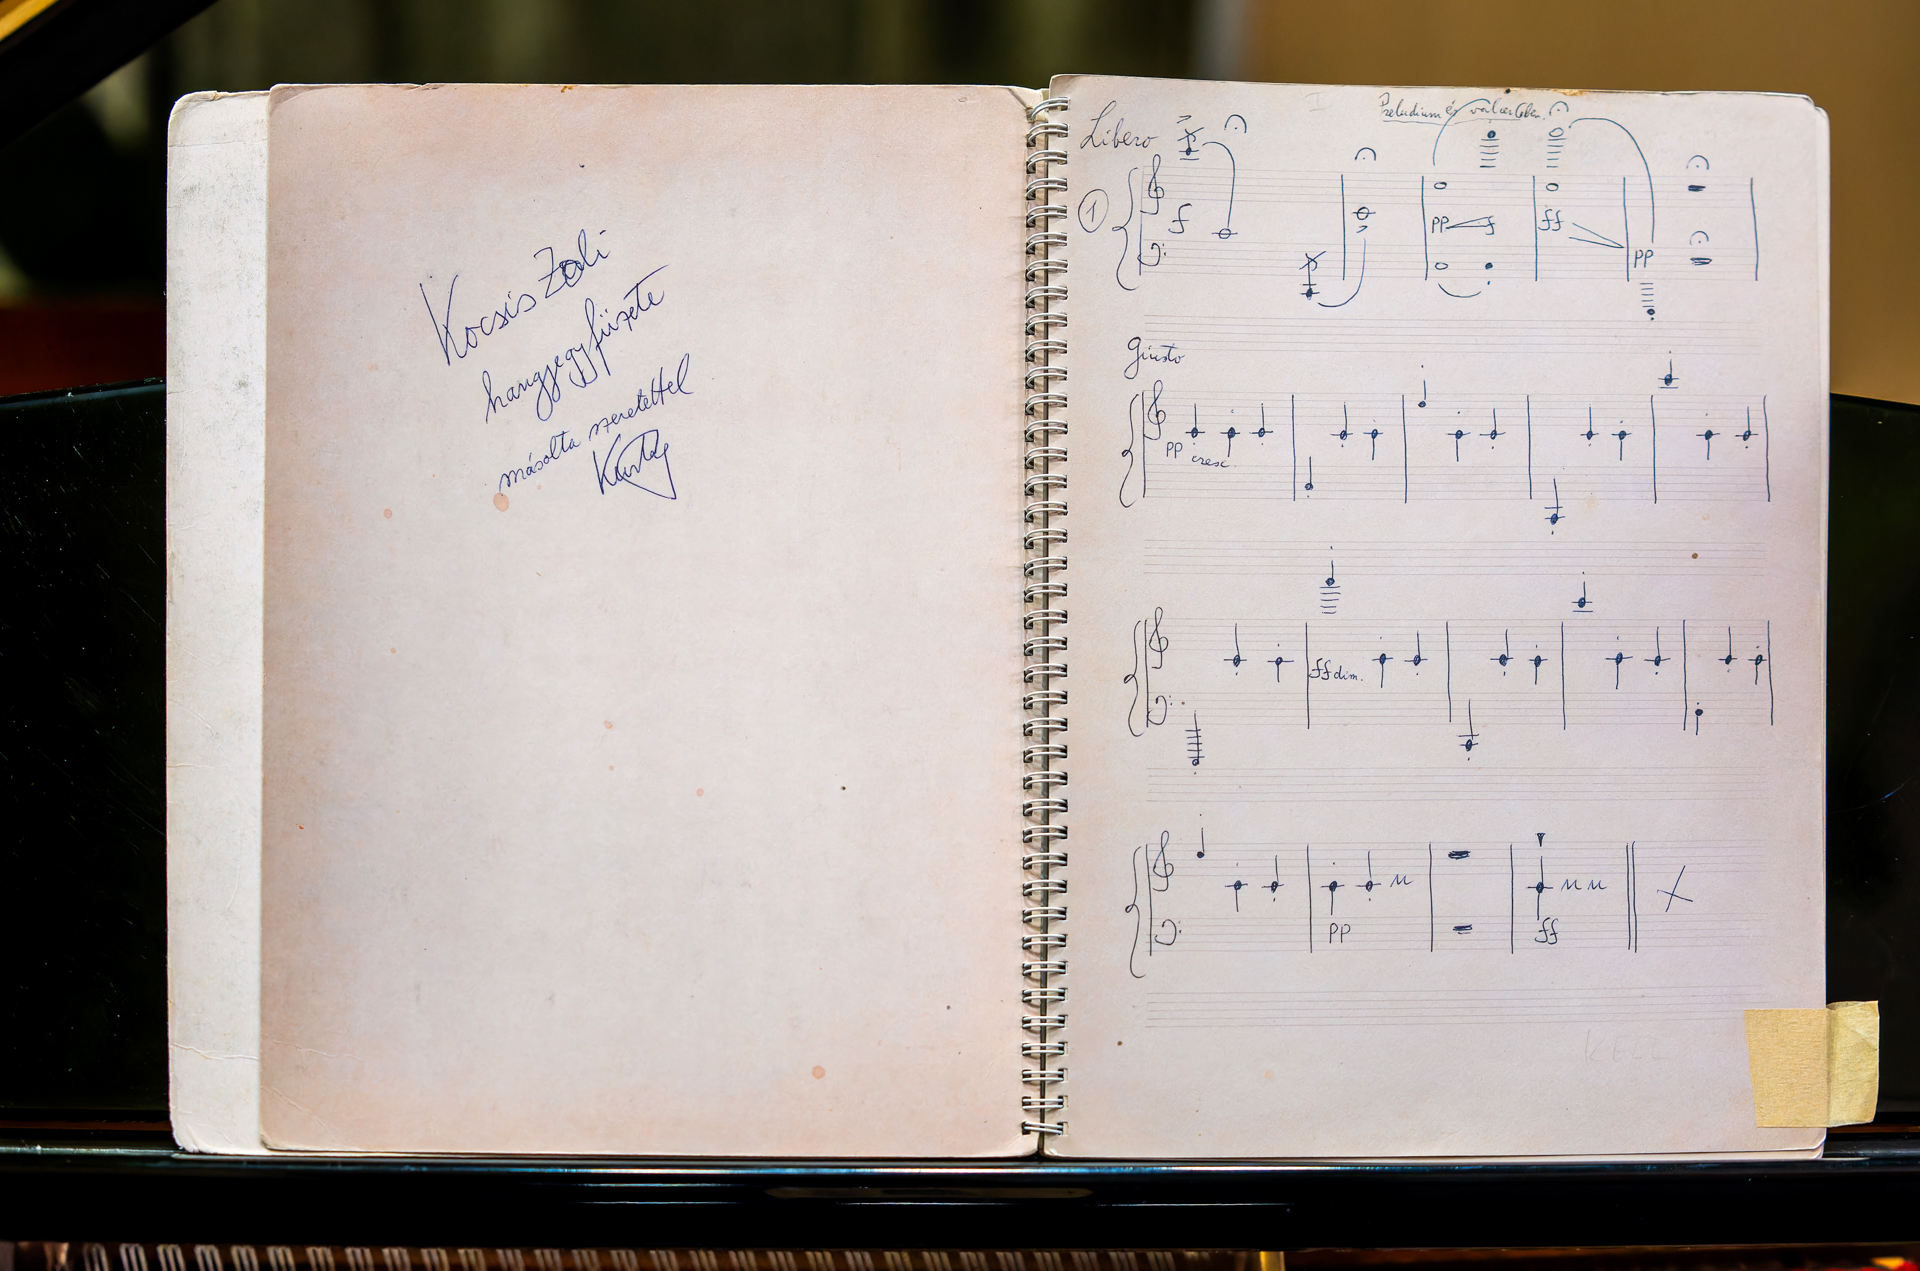 Kocsis Zoli
hangjegyfüzete
másolta szeretettel
Kurtág
Preludium és valcer C-ben
Libero
1
f
pp f ff
pp
Giusto
pp cresc.
ff dim.
pp ff